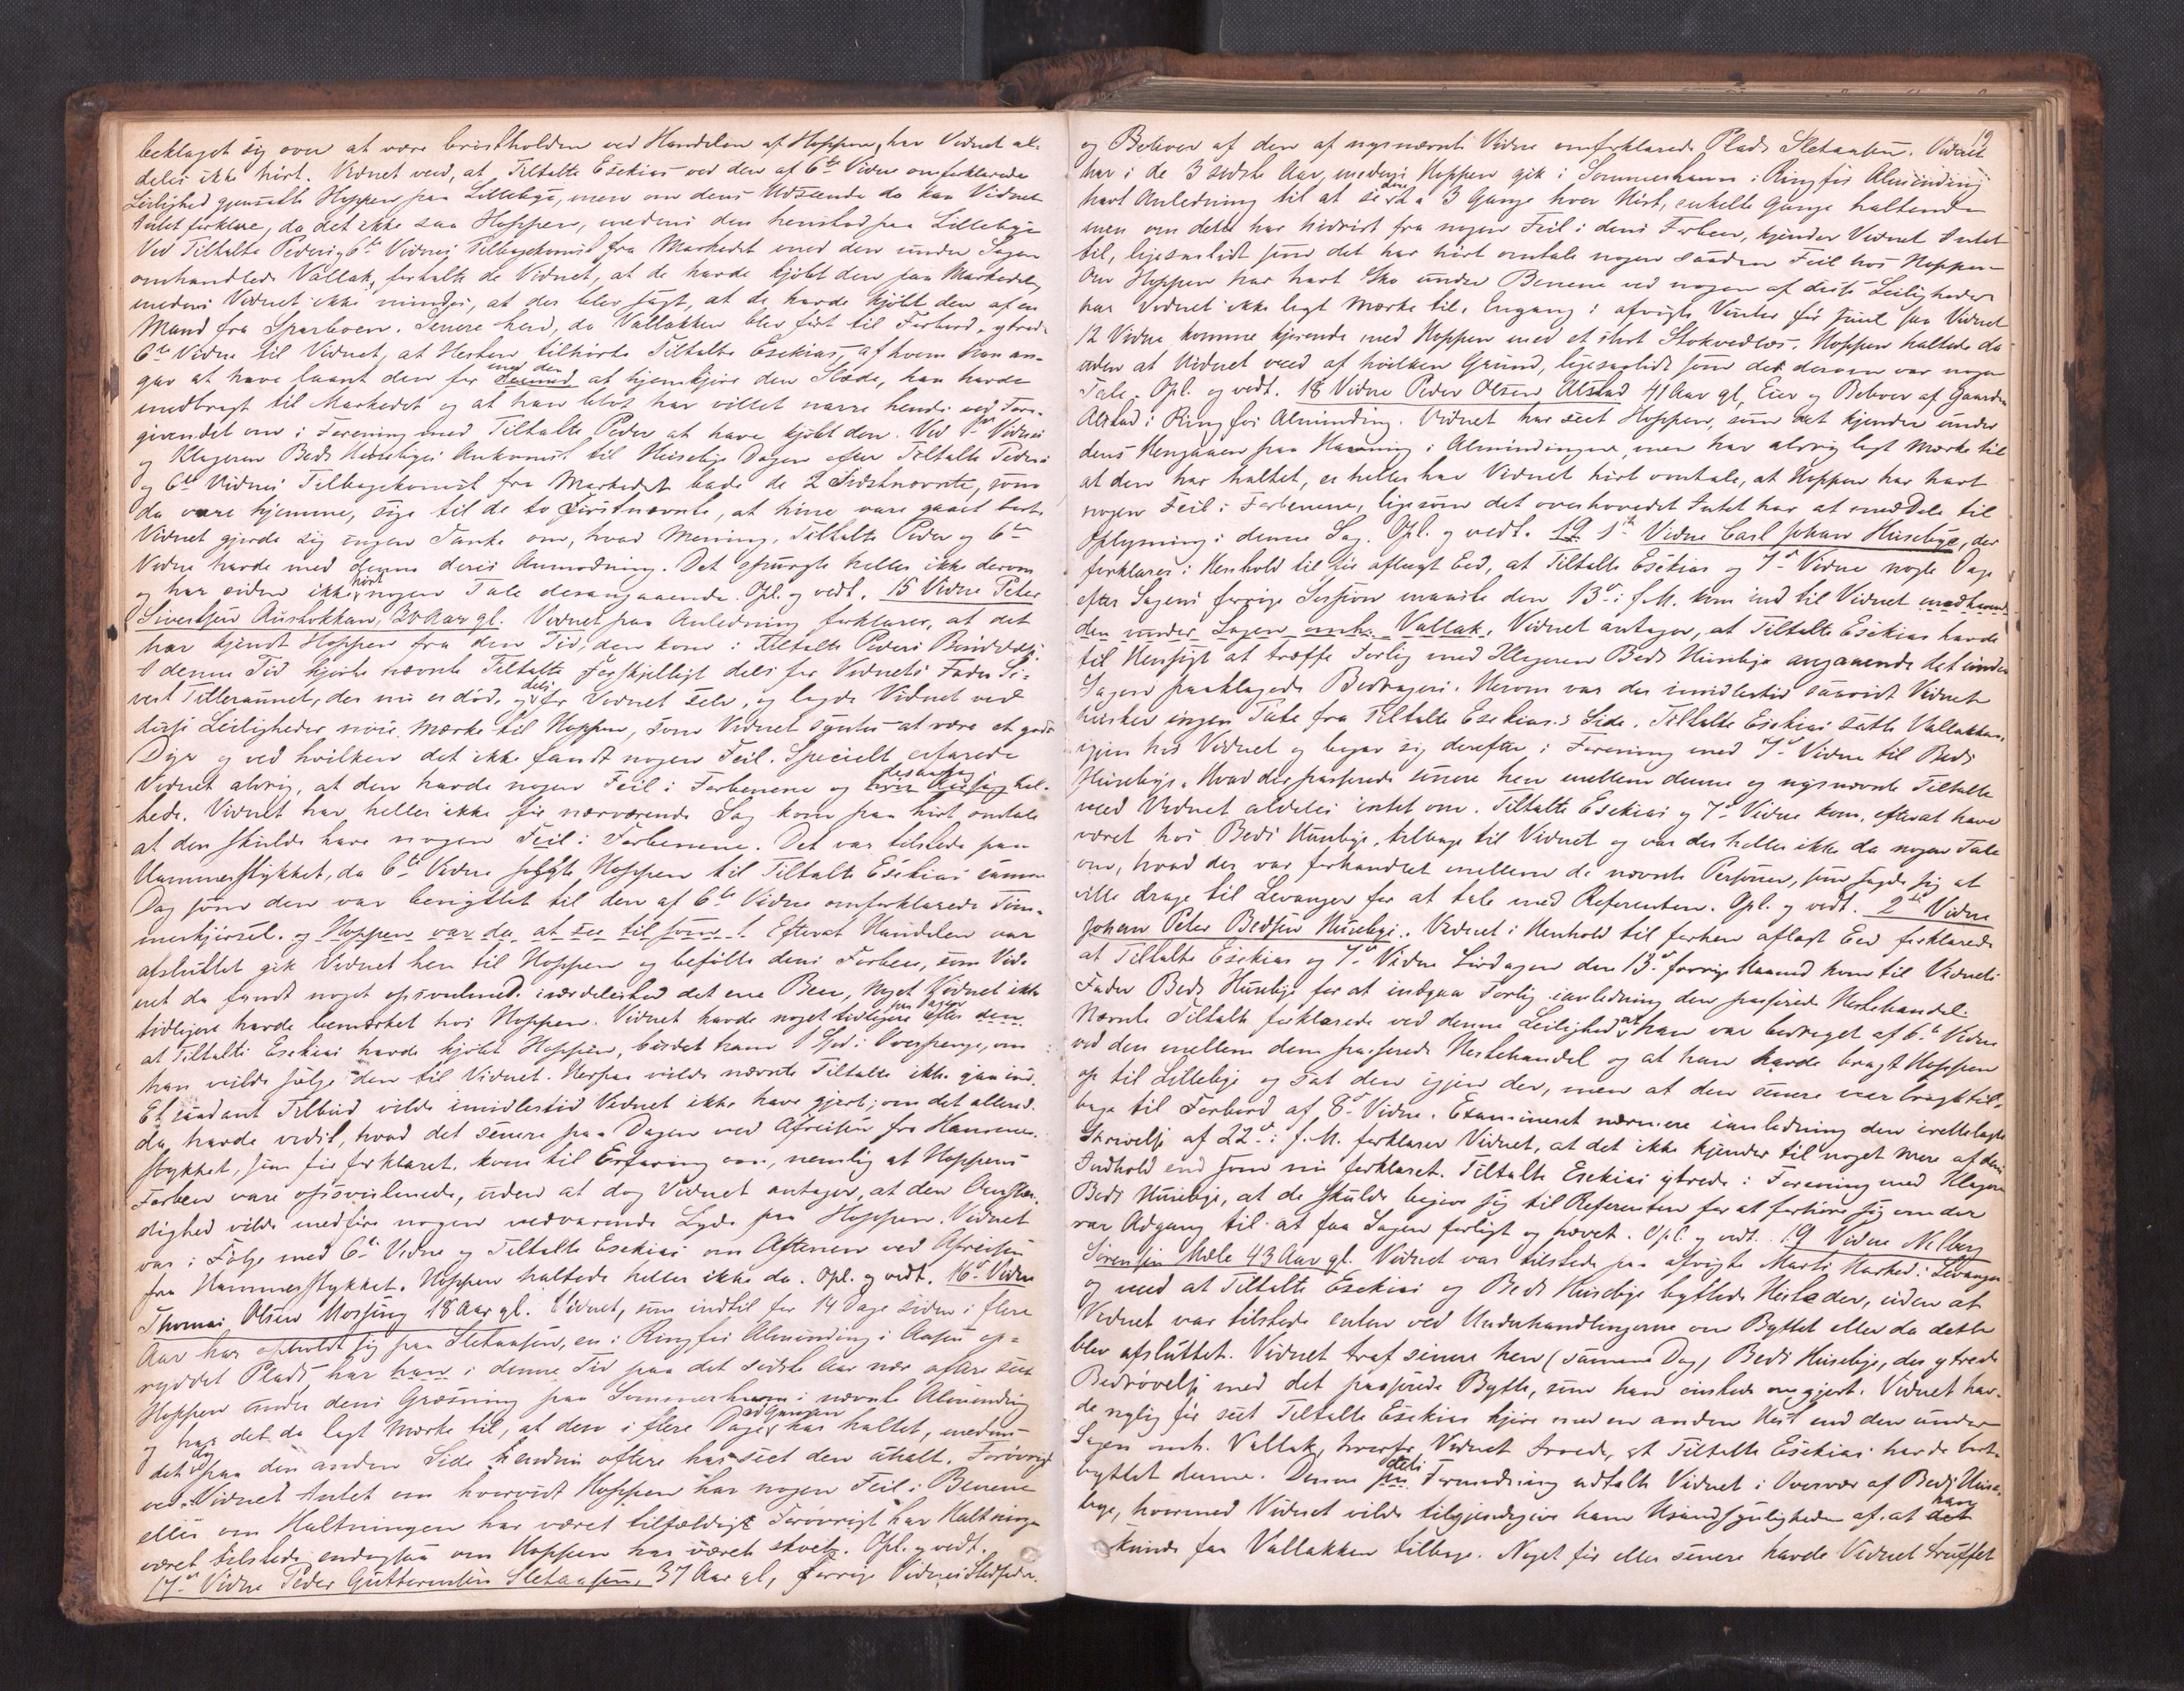 beklaget sig over at være bristholden ved Handelen af Hoppen, har Vidnet al-
deles ikke hørt. Vidnet veed, at Tiltalte Esekias ved den af 6te Vidne omforklarede
Leilighed gjensatte Hoppen paa Lillebye, men om dens Udseende da kan Vidnet
Intet forklare, da det ikke saa Hoppen, medens den henstod paa Lillebye
Ved Tiltalte Peders og 6te Vidnes Tilbagekomst fra Markedet med den under Sagen
omhandlede Vallak, fortalte de Vidnet, at de havde kjøbt den paa Markedet,
medens Vidnet ikke mindes, at der blev sagt, at de havde kjøbt den af en
Mand fra Sparboen. Senere hen, da Vallakken blev ført til Forbord, ytrede
6te Vidne til Vidnet, at Hesten tilhørte Tiltalte Esekias, af hvem han an-
gav at have laant den for med den at hjemkjøre den Slæde, han havde
medbragt til Markedet og at han blot har villet narre hende ved Fore-
givendet om i Forening med Tiltalte Peder at have kjøbt den. Ved 1ste Vidnes
og Klageren Beds Husebyes Ankomst til Husebye Dagen efter Tiltalte Peders
og 6te Vidnes Tilbagekomst fra Markedet bade de 2 Sidstnævnte, som
da vare hjemme, sige til de to Førstnævnte, at hine vare gaaet bort.
Vidnet gjorde sig ingen Tanke om, hvad Mening, Tiltalte Peder og 6te
Vidne havde med denne deres Anmodning. Det spurgte heller ikke derom
og har siden ikke hørt nogen Tale desangaaende. Opl. og vedt. 15 Vidne Peter
Sivertsen Aunlokkan, Aar gl. Vidnet paa Anledning forklarer, at det
har kjendt Hoppen fra den Tid, den kom i Tiltalte Peders
I denne Tid kjørte nævnte Tiltalte Forskjelligt dels for Vidnets Fader Si-
vert Tilleraunet, der nu er død, og dels for Vidnet selv, og lagde Vidnet ved
disse Leiligheder nøie Mærke til Hoppen, som Vidnet syntes at være et godt
Dyr og ved hvilken det ikke fandt nogen Feil. Specielt erfarede
Vidnet aldrig, at den havde nogen Feil i Forbenene og desaarsag hal-
tede. Vidnet har heller ikke før nærværende Sag kom paa hørt omtale
at den skulde have nogen Feil i Forbenene. Det var tilstede paa
Hammerstykket, da 6te Vidne solgte Hoppen til Tiltalte Esekias samme
Dag som den var benyttet til den af 6te Vidne omforklarede Tøm-
merkjørsel. og Hoppen var da at see til som . Efterat Handelen var
afsluttet gik Vidnet hen til Hoppen og befølte dens Forbeen, som Vid-
net da fandt noget opsvulmed. isærdeleshed det ene Been, noget Vidnet ikke
tidligere havde bemærket hos Hoppen. Vidnet havde noget tidligere paa Dagen efter
at Tiltalte Esekias havde kjøbt Hoppen, budet ham 1 Spd. i Overpenge, om
han vilde sælge den til Vidnet. Herpaa vilde nævnte Tiltalte ikke gaa ind.
Et saadant Tilbud vilde imidlertid Vidnet ikke have gjort, om det allered.
da havde vidst, hvad det senere paa Dagen ved Afreisen fra Hammer-
stykket, som før forklaret, kom til Erfaring om, nemlig at Hoppens
Forbeen vare opsvulmede, uden at dog Vidnet antager, at den Omstæn-
dighed vilde medføre nogen vedvarende Lyde paa Hoppen. Vidnet
var i Følge med 6te Vidne og Tiltalte Esekias om Aftenen ved Afreisen
fra Hammerstykket. Hoppen haltede heller ikke da. Opl. og vedt. 16de Vidne
Thomas Olsen Mossing 18 Aar gl. Vidnet, som indtil for 14 Dage siden i flere
Aar har opholdt sig paa Sletaasen, en i Ringfos Alminding i Aasen op-
ryddet Plads, har han i denne Tid paa det sidste Aar nær oftere seet
Hoppen under dens Græsning paa Sommerhavn i nævnte Alminding
og har det da lagt Mærke til, at den i flere Dage ad Gangen har haltet, medens
det dog paa den anden Side hendes oftere har seet den uhalt. Forøvrigt
ved Vidnet Intet om hvorvidt Hoppen har nogen Feil i Benene
eller om Haltningen har været tilfældigt. Forøvrigt har Haltningen
været tilstede endogsaa om Hoppen har været skoet. Opl. og vedt.
17de Vidne Peder Guttormsen Sletaasen, 37 Aar gl, forrige Vidnes Stedfader
19
og Beboer af den af nysnævnte Vidne omforklarede Plads Sletaasen. Vidnet
har i de 3 sidste Aar, medens Hoppen gik i Sommerhavn i Ringfos Alminding
havt Anledning til at se den 2 a 3 Gange hver Høst, enkelte Gange haltende
men om dette har hidrørt fra nogen Feil i dens Forbeen, kjender Vidnet Intet
til, ligesaalidt som det har hørt omtale nogen saadan Feil hos Hoppen
Om Hoppen har havt Sko under Benene ved nogen af disse Leiligheder
har Vidnet ikke lagt Mærke til. Engang i afvigte Vinter før Juul saa Vidnet
12 Vidne komme kjørende med Hoppen med et stort Stokvedlæs. Hoppen haltede da
uden at Vidnet veed af hvilken Grund, ligesaalidt som det derom var nogen
Tale. Opl. og vedt. 18 Vidne Peder Olsen Alstad 41 Aar gl, Eier og Beboer af Gaarden
Alstad i Ringfos Alminding. Vidnet har seet Hoppen, som det kjender under
dens Hengaaen paa Havning i Almindingen, men har aldrig lagt Mærke til
at den har haltet, ei heller har Vidnet hørt omtale, at Hoppen har havt
nogen Feil i Forbenene, ligesom det overhovedet Intet har at meddele til
Oplysning i denne Sag. Opl. og vedt. 19. 1ste Vidne Carl Johan Husebye, der
forklarer i Henhold til før aflagt Eed, at Tiltalte Esekias og 7de Vidne nogle Dage
efter Sagens forrige Session maaske den 13de i f. M. kom ind til Vidnet medhavende
den under Sagen omh. Vallak. Vidnet antager, at Tiltalte Esekias havde
til Hensigt at træffe Forlig med Klageren Beds Husebye angaaende det under
Sagen paaklagede Bedrageri. Herom var der imidlertid saavidt Vidnet
husker ingen Tale fra Tiltalte Esekias's Side. Tiltalte Esekias satte Vallakken
igjen hos Vidnet og begav sig derefter i Forening med 7de Vidne til Beds
Husebye. Hvad der passerede senere hen mellem denne og nysnævnte Tiltalte
veed Vidnet aldeles intet om. Tiltalte Esekias og 7de Vidne kom, efterat have
været hos Beds Husebye, tilbage til Vidnet og var der heller ikke da nogen Tale
om, hvad der var forhandlet mellem de nævnte Personer, som sagde sig at
ville drage til Levanger for at tale med Referenten. Opl. og vedt. 2det Vidne
Johan Peter Bedsen Husebye. Vidnet i Henhold til forhen aflagt Eed forklarede
at Tiltalte Esekias og 7de Vidne Lørdagen den 13de forrige Maaned kom til Vidnets
Fader Beds Husebye for at indgaa Forlig i anledning den passerede Hestehandel.
Nævnte Tiltalte forklarede ved denne Leilighed, at han var bedraget af 6te Vidne
ved den mellem dem passerede Hestehandel og at han havde bragt Hoppen
op til Lillebye og sat den igjen der, men at den senere var bragt til-
bage til Forbord af 8de Vidne. Examineret nærmere i anledning den irettelagte
Skrivelse af 22de i f. M. forklarer Vidnet, at det ikke kjender til noget mere af dens
Indhold end som nu forklaret. Tiltalte Esekias ytrede i Forening med Klageren
Beds Husebye, at de skulde begive sig til Referenten for at forhøre sig om der
var Adgang til at faa Sagen forligt og hævet. Opl. og vedt. 19 Vidne
Sørensen Mæle 43 Aar gl. Vidnet var tilstede paa afvigte Marts Marked i Levanger
og veed at Tiltalte Esekias og Beds Husebye byttede Heste der, uden at
Vidnet var tilstede enten ved Underhandlingerne om Byttet eller da dette
blev afsluttet. Vidnet traf senere hen (samme Dag) Beds Husebye, der ytrede
Bedrøvelse med det passerede Bytte, som han ønskede omgjort. Vidnet hav-
de nylig før seet Tiltalte Esekias kjøre med en anden Hest end den under
Sagen omh. Vallak, hvorfor Vidnet troede, at Tiltalte Esekias havde bort-
byttet denne. Denne dets Formodning udtalte Vidnet i Overvær af Beds Huse-
bye, hvormed Vidnet vilde tilkjendegive ham Usandsynligheden af at han
kunde faa Vallakken tilbage. Noget før eller senere havde Vidnet truffet